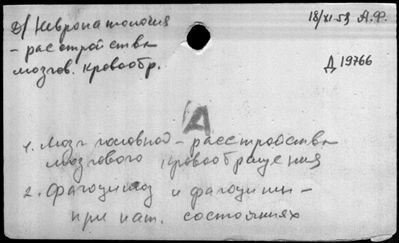 д/ Невропатология
18/XI-59 А.Ф.
- расстройства
мозгов. кровообр.
Д 19766
А
1. Мозг головной - расстройства
мозгового кровообращения
2. Фагоцитоз и фагоциты -
при пат. состояниях